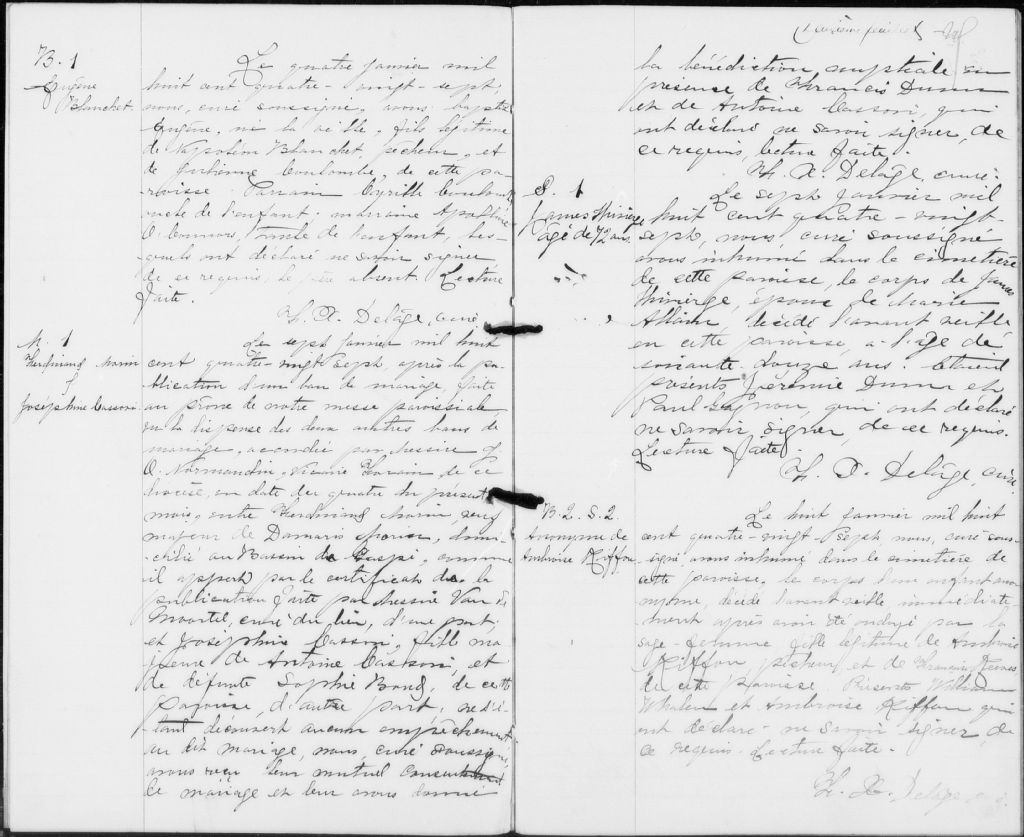 B. 1
Eugène
Blanchet
Le quatre janvier mil
huit cent quatre-vingt-sept,
nous, curé soussigné, avons baptisé
Eugène, né la veille, fils légitime
de Napoléon Blanchet, pêcheur, et
de Coulombe, de cette pa-
roisse. Parrain Cyrille Coulombe
oncle de l'enfant; marraine Apolline
O'Connors, tante de l'enfant, les-
quels ont déclaré ne savoir signer
de ce requis, le père absent. Lecture
faite.
F. X. Delâge, curé
M. 1
Ferdinand Morin
&
Joséphine Cassoni
Le sept janvier mil huit
cent quatre-vingt sept, après la pu-
blication d'un ban de mariage, faite
au prône de notre messe paroissiale
vu la dispense des deux autres bans de
mariage, accordée par Messire
O. Normandin, Vicaire Forain de ce
diocèse, en date du quatre du présent
mois, entre Ferdinand Morin, veuf
majeur de Damaris domi-
-cilié au Bassin de Gaspé, comme
il appert par le certificat de la
publication faite par Messire Van de
Moortel, curé du lieu, d'une part;
et Joséphine Cassoni, fille ma-
jeure de Antoine Cassoni, et
de défunte Sophie Bond, de cette
paroisse, d'autre part; ne s'é-
tant découvert aucun empêchement
au dit mariage, nous, curé soussigné,
avons reçu leur mutuel consentement
de mariage et leur avons donné
(Deuxième feuillet)
la bénédiction nuptiale en
présence de Francis Dunn
et de Antoine Cassoni, qui
ont déclaré ne savoir signer, de
ce requis, lecture faite.
F. X. Delâge, curé.
S. 1
James
âgé de 72 ans.
Le sept janvier mil
huit cent quatre-vingt-
sept, nous, curé soussigné
avons inhumé dans le cimetière
de cette paroisse, le corps de James
époux de Marie
Allain, décédé l'avant veille
en cette paroisse, à l'âge de
soixante-douze ans. Étaient
présents Jérémie Dunn et
Paul Gagnon, qui ont déclaré
ne savoir signer, de ce requis.
Lecture faite.
F. X. Delâge, curé.
B. 2. S. 2.
Anonyme de
Ambroise Riffou
Le huit janvier mil huit
cent quatre-vingt sept nous, curé sous-
signé, avons inhumé dans le cimetière de
cette paroisse, le corps d'un enfant ano-
nyme, décédé l'avant veille, immédiate-
ment après avoir été ondoyé par la
sage-femme fille légitime de Ambroise
Riffou pêcheur et de
de cette paroisse. Présents William
Whalen et Ambroise Riffou qui
ont déclaré ne savoir signer, de
ce requis. Lecture faite.
F. X. Delâge